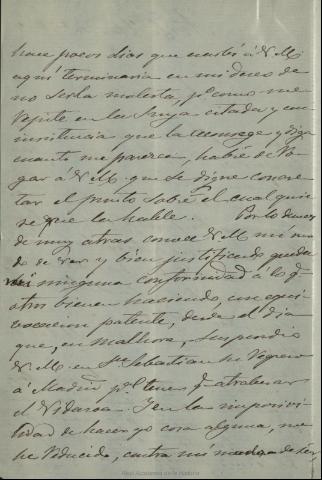 hace pocos dias que escribí á V. M.
aquí terminaria en mi deseo de
no serla molesta, pº como me
repite en la suya citada y con
insistencia que la aconseje y diga
cuanto me parezca, habré de ro-
gar á V. M. que se digne concre-
tar el punto sobre el cual quie-
re que la hable. Por lo demas
de muy atras conoce V. M. mi mo-
do de ver y bien justificado queda
mi ninguna conformidad á lo q.
otros vienen haciendo, con equi-
vocacion patente, desde el dia
que, en malhora, suspendio
V. M. en Sn. Sebastian su regreso
á Madrid pr. tener q. atrabesar
el Vidasoa. Y en la imposivi-
lidad de hacer yo cosa alguna, me
he reducido, contra mi modo de ser,
Real Academia de la Historia